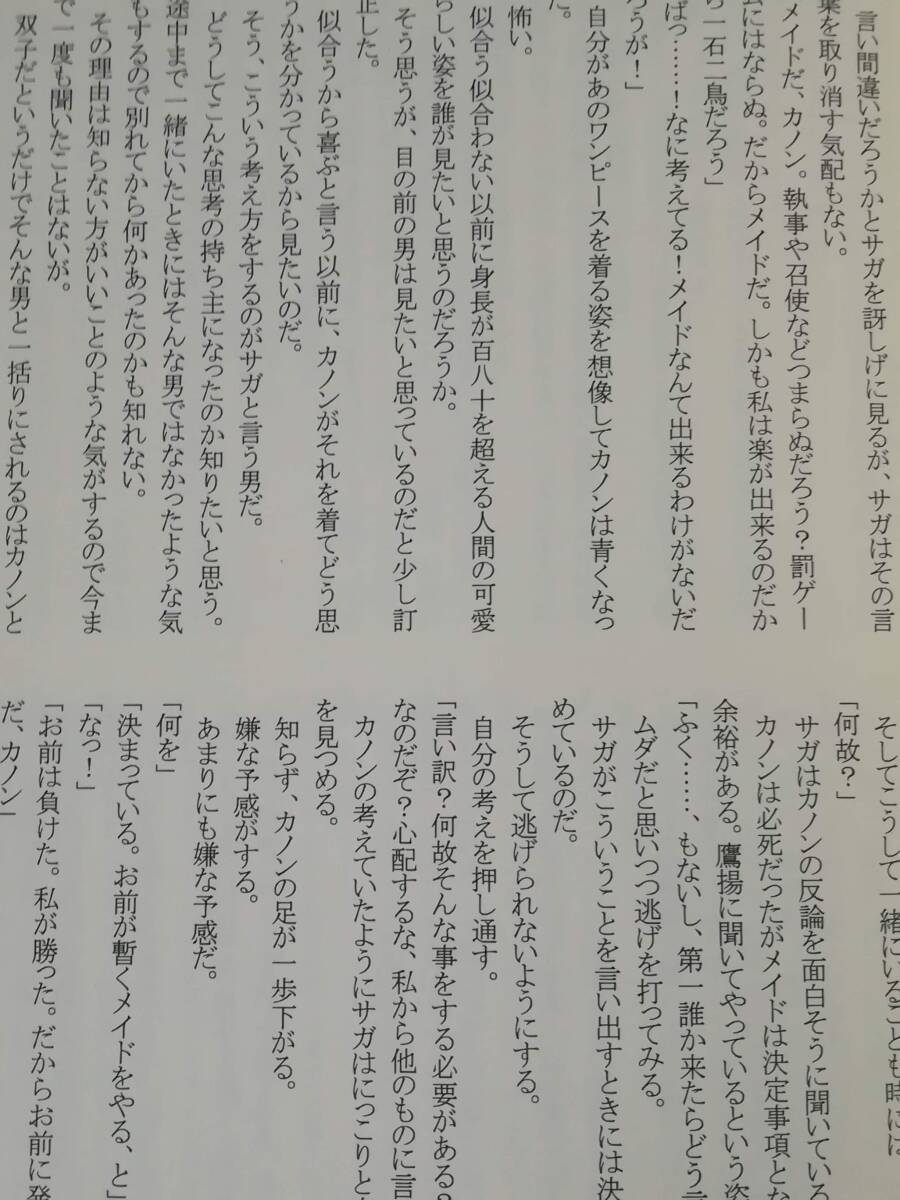 言い間違いだろうかとサガを訝しげに見るが、サガはその言
葉を取り消す気配もない。
メイドだ、カノン。執事や召使などつまらぬだろう？罰ゲー
ムにはならぬ。だからメイドだ。しかも私は楽が出来るのだか
ら一石二鳥だろう」
ばっ……！なに考えてる！メイドなんて出来るわけがないだ
ろうが！」
自分があのワンピースを着る姿を想像してカノンは青くなっ
た。
怖い。
似合う似合わない以前に身長が百八十を超える人間の可愛
らしい姿を誰が見たいと思うのだろうか。
そう思うが、目の前の男は見たいと思っているのだと少し訂
正した。
似合うから喜ぶと言う以前に、カノンがそれを着てどう思
うかを分かっているから見たいのだ。
そう、こういう考え方をするのがサガと言う男だ。
どうしてこんな思考の持ち主になったのか知りたいと思う。
途中まで一緒にいたときにはそんな男ではなかったような気
もするので別れてから何かあったのかも知れない。
その理由は知らない方がいいことのような気がするので今ま
で一度も聞いたことはないが。
双子だというだけでそんな男と一括りにされるのはカノンと
そしてこうして一緒にいることも時には
「何故？」
サガはカノンの反論を面白そうに聞いている
カノンは必死だったがメイドは決定事項とな
余裕がある。鷹揚に聞いてやっているという姿
「ふく……、もないし、第一誰か来たらどう言
ムダだと思いつつ逃げを打ってみる。
サガがこういうことを言い出すときには決
めているのだ。
そうして逃げられないようにする。
自分の考えを押し通す。
「言い訳？何故そんな事をする必要がある？
なのだぞ？心配するな、私から他のものに言
カノンの考えていたようにサガはにっこりと
を見つめる。
知らず、カノンの足が一歩下がる。
嫌な予感がする。
あまりにも嫌な予感だ。
「何を」
「決まっている。お前が暫くメイドをやる、と」
「なっ！」
「お前は負けた。私が勝った。だからお前に発
だ、カノン」